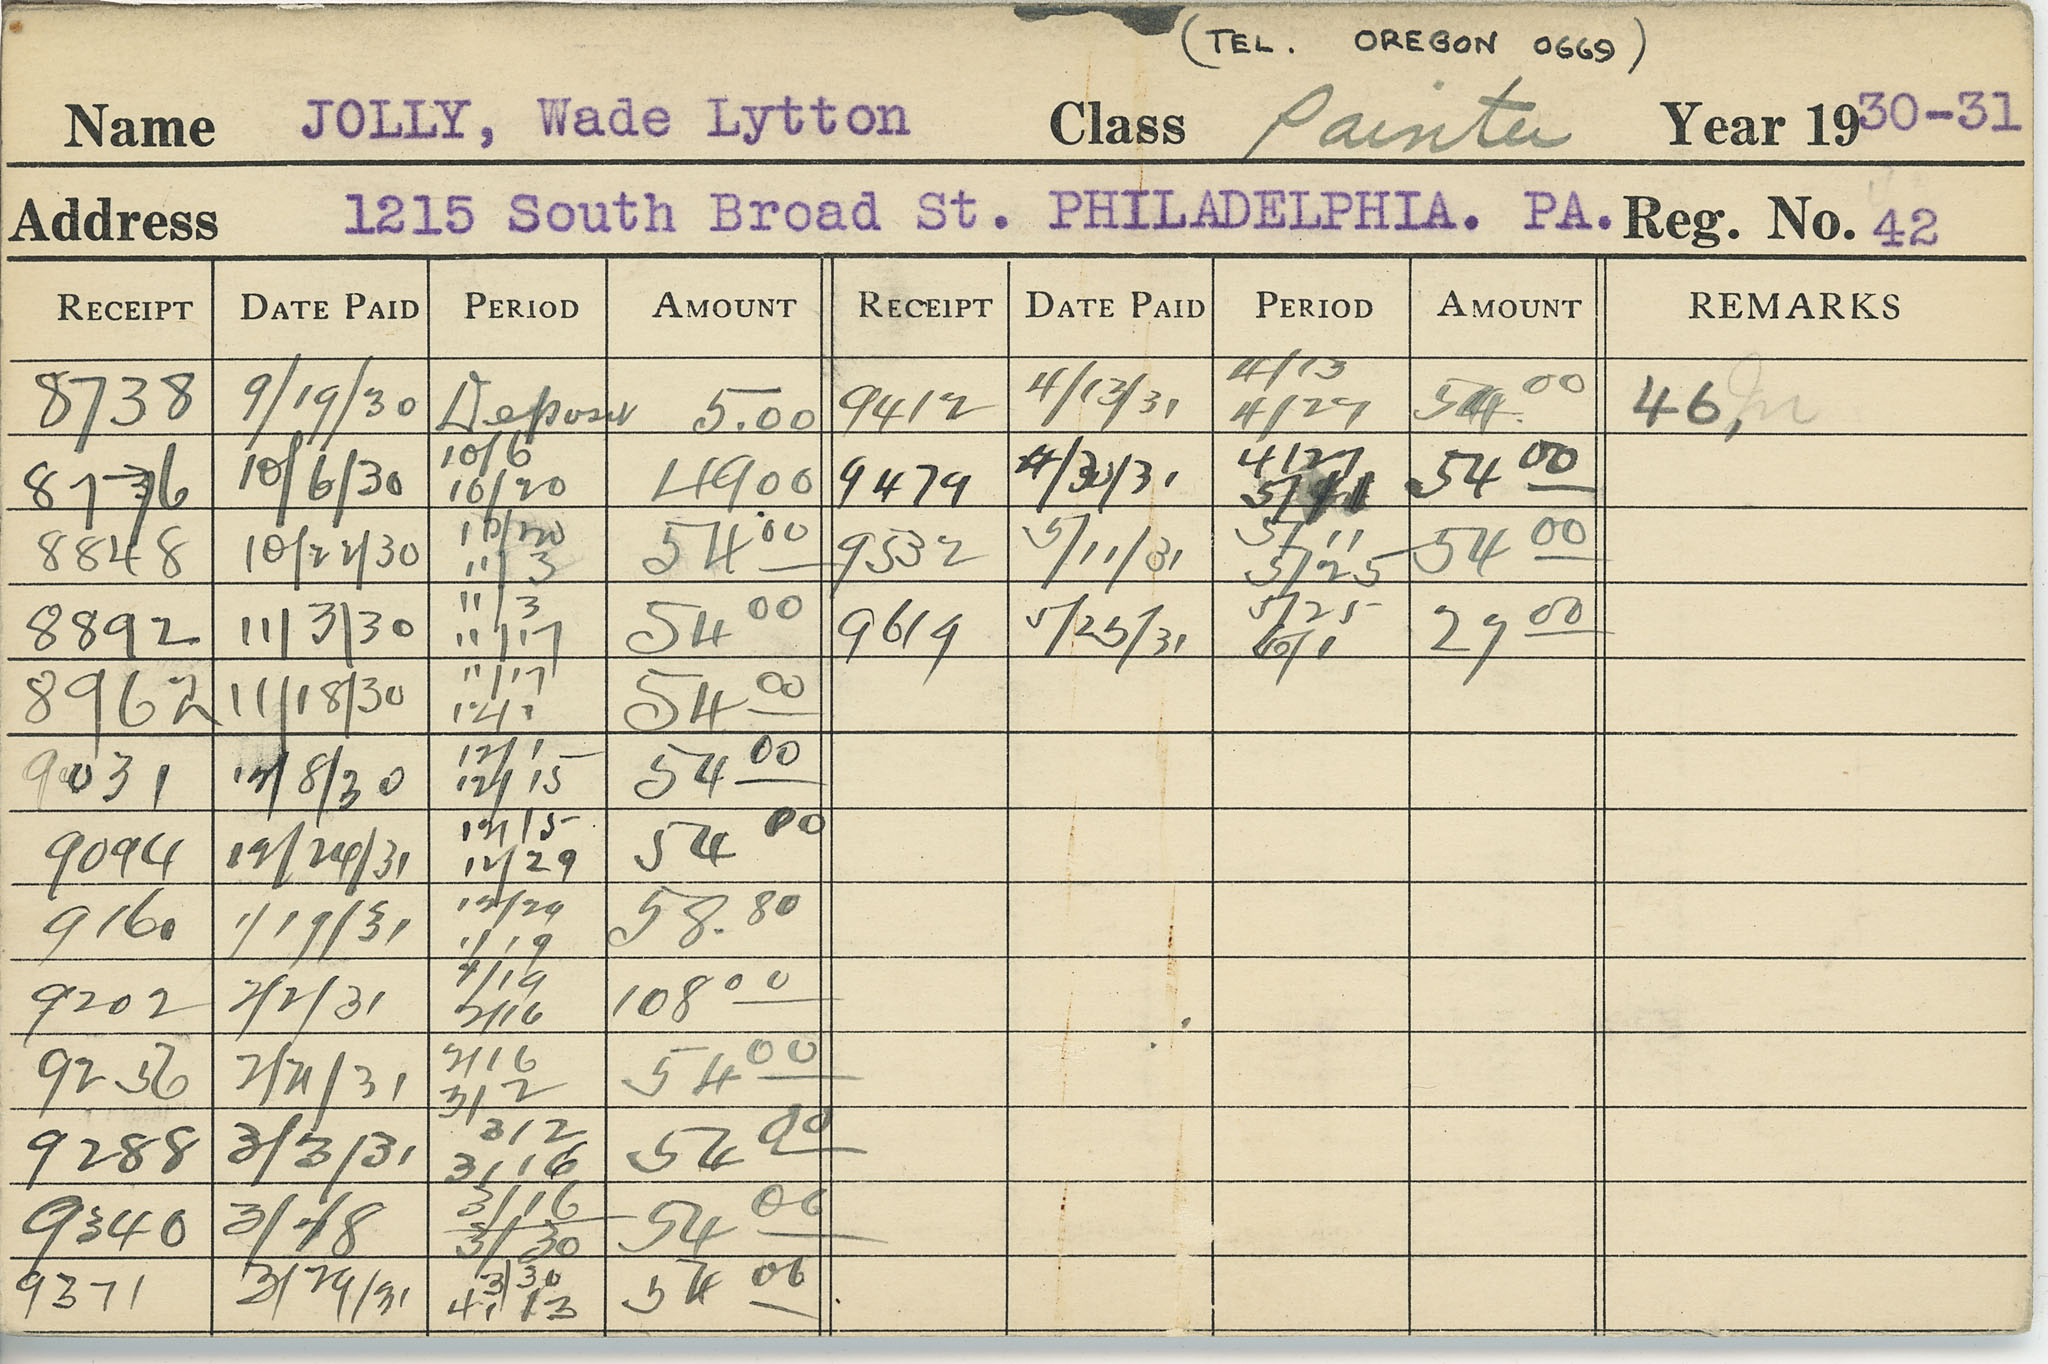 (TEL. OREGON 0669)
Name JOLLY, Wade Lytton Class Painter Year 1930-31
Address 1215 South Broad St. PHILADELPHIA. PA. Reg. No. 42
RECEIPT DATE PAID PERIOD AMOUNT RECEIPT DATE PAID PERIOD AMOUNT REMARKS
8738 9/19/30 Deposit 5.00 9412 4/13/31 4/13 4/27 54.00 46,
10/6/30 10/6 10/20 49.00 9479 4/30/31 4/27 54 00
8848 10/22/30 10/20 11/3 54.00 9532 5/11/31 5/11 5/25 54 00
8892 11/3/30 11/3 11/17 54 00 9619 5/25/31 5/25 6/1 27 00
8962 11/18/30 11/17 12/1 54 00
9031 12/8/30 12/1 12/15 54 00
9094 12/24/31 12/15 12/29 54 00
9160 1/19/31 12/29 1/19 58.80
9202 2/2/31 1/19 2/16 108 00
9236 2/21/31 2/16 3/2 54 00
9288 3/3/31 3/2 3/16 54 00
9340 3/18 3/16 3/30 54 00
9371 3/29/31 3/30 4/13 54 00